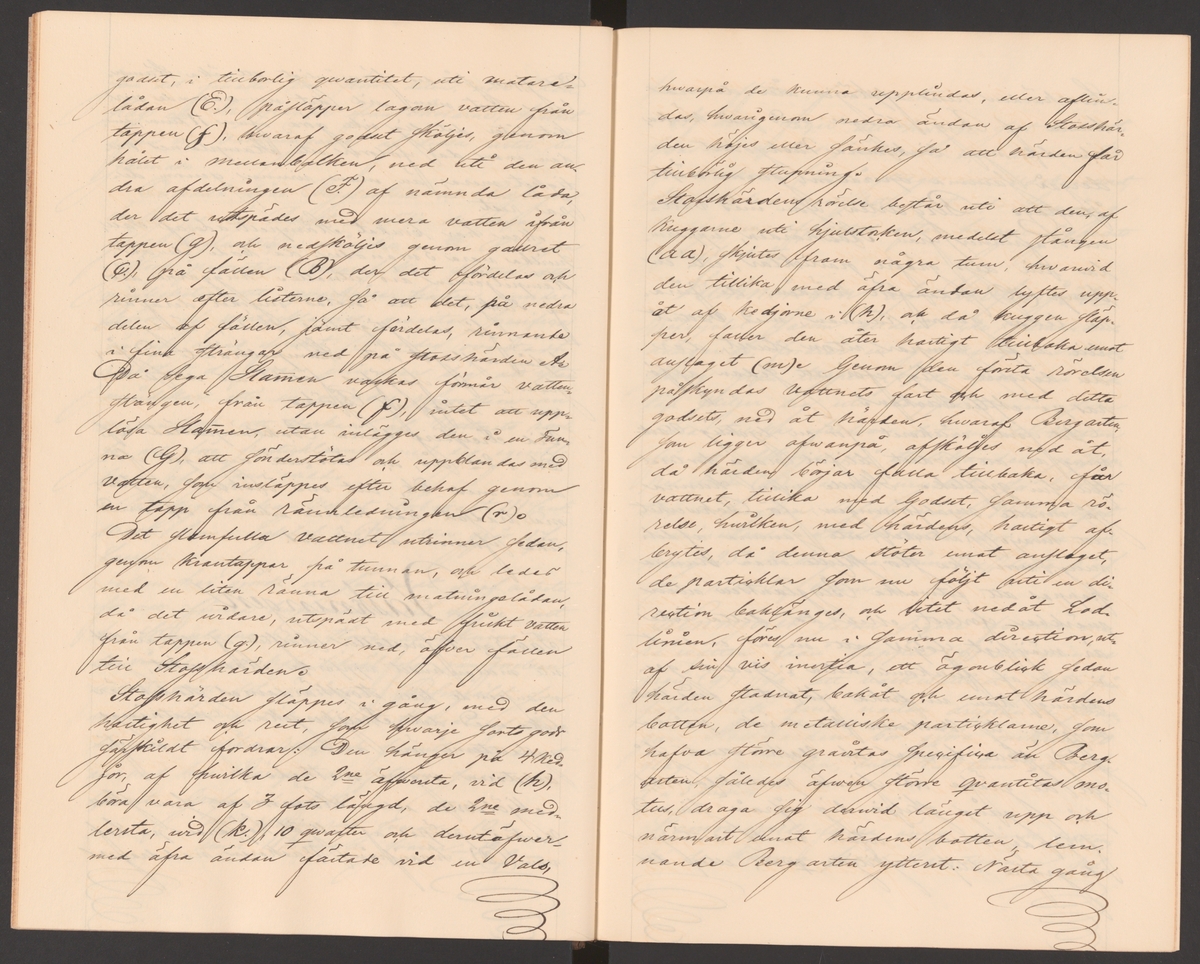 godset, i tillbörlig qwantitet, uti matare-
lådan (E.), påsläpper lagom vatten från
tappen (f), hwaraf godset sköljes, genom
hålet i mellanbalken, ned uti den an-
dra afdelningen (F) af nämnda låda,
der det utspädes med mera vatten ifrån
tappen (g), och nedsköljes genom gallret
(c), på fällen (B), der det fördelas och
rinner efter listerne, så att det, på nedra
delen af fällen, jämt fördelas, rinnande
i fina strängar ned på stosshärden A:
Då sega Slamen vaskas förmår vatten-
strängen, från tappen (f), intet att upp-
lösa Slamen, utan inlägges den i en Tun-
na (G), att sönderstötas och uppblandas med
vatten, som insläppes efter behaf genom
en tapp från rännledningen (r).
Det slamfulla vattnet utrinner sedan,
genom krantappar på tunnan, och ledes
med en liten ränna till matningslådan,
då det widare, utspädt med friskt vatten
från tappen (g), rinner ned, öfver fällen
till Stosshärden.
Stosshärden släppes i gång, med den
hastighet och rest, som hwarje sorts gods
särskildt fordrar: Den hänger på 4 ked-
jor, af hwilka de 2ne äfwersta, vid (h),
böra vara af 3 fots längd, de 2ne med-
lersta, wid (k.), 10 qwarter och derutäfwer
med äfra ändan fästade vid en Vals,
hwarpå de kunna upplindas, eller aflin-
das, hwarigenom nedra ändan af Stosshär-
den höjes eller sänkes, så att härden får
tillbörlig stupning.
Stosshärdens rörelse består uti att den, af
kuggarne uti hjulstocken, medelst stången
(aa), skjutes fram några tum, hwarwid
den tillika med äfra ändan lyftes upp-
åt af kedjorne i (h), och då kuggen släp-
per, faller den åter hastigt tillbaka emot
anslaget (m). Genom den första rörelsen
påskyndas vattnets fart och med detta
godsets, ned åt härden, hwaraf Bergarten,
som ligger ofwanpå, afsköljes ned åt,
då härden börjar falla tillbaka, får
vattnet, tillika med Godset, samma rö-
relse, hwilken, med härdens, hastigt af-
brytes, då denna stöter emot anslaget,
de partiklar som nu följt uti en di-
rection baklänges, och litet nedåt Lod-
linien, föres nu i samma direction, ut-
af sin vis inertia, ett ögonblick sedan
härden stadnat, bakåt och emot härdens
botten, de metalliske partiklarne, som
hafva större gravitas specifica än Berg-
arten, således äfwen större qvantitas mo-
tus, draga sig derwid längst upp och
närmast emot härdens botten, lem-
nande Bergarten ytterst: Nästa gång